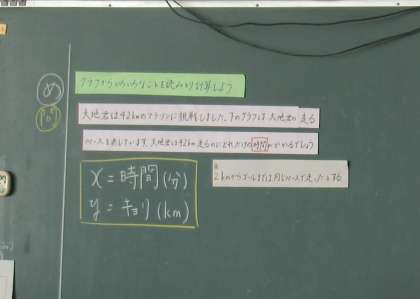 め
グラフからいろいろなことを読みとり計算しよう
問
大地君は42kmのマラソンに挑戦しました。下のグラフは大地君の走る
のペースを表しています。大地君は42km走るのにどれだけの時間がかかるでしょう
x=時間(分)
y=キョリ(km)
2kmからゴールまでは同じペースで走ったとする